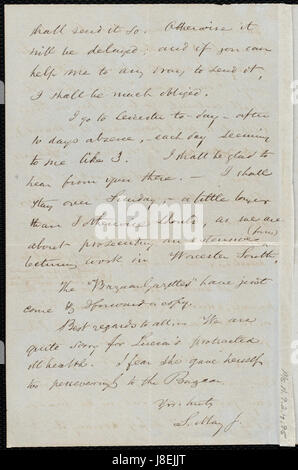 shall send it so. Otherwise it
will be delayed; and if you can
help me to any way to send it,
I shall be much obliged.
I go to Leicester to-day - after
10 days absence, each day seeming
to me like 3. I shall be glad to
hear from you there. - I shall
stay over Sunday, - a little longer
than I otherwise should, as we are
about prosecuting an extensive (series)
lecturing work in Worcester South.
The "Bazaar Gazettes" have just
come & I forward a copy.
Best regards to all. We are
quite sorry for Lucia's protracted
ill health. I fear she gave herself
too perseveringly to the Bazaar.
Yrs. truly
S. May Jr.
alamy
E8EJJT